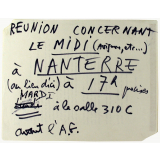 REUNION CONCERNANT
LE MIDI (
à NANTERRE
(au lieu d'ici) à 17h précises
MARDI
à la salle 310 C
avant l'A.G.